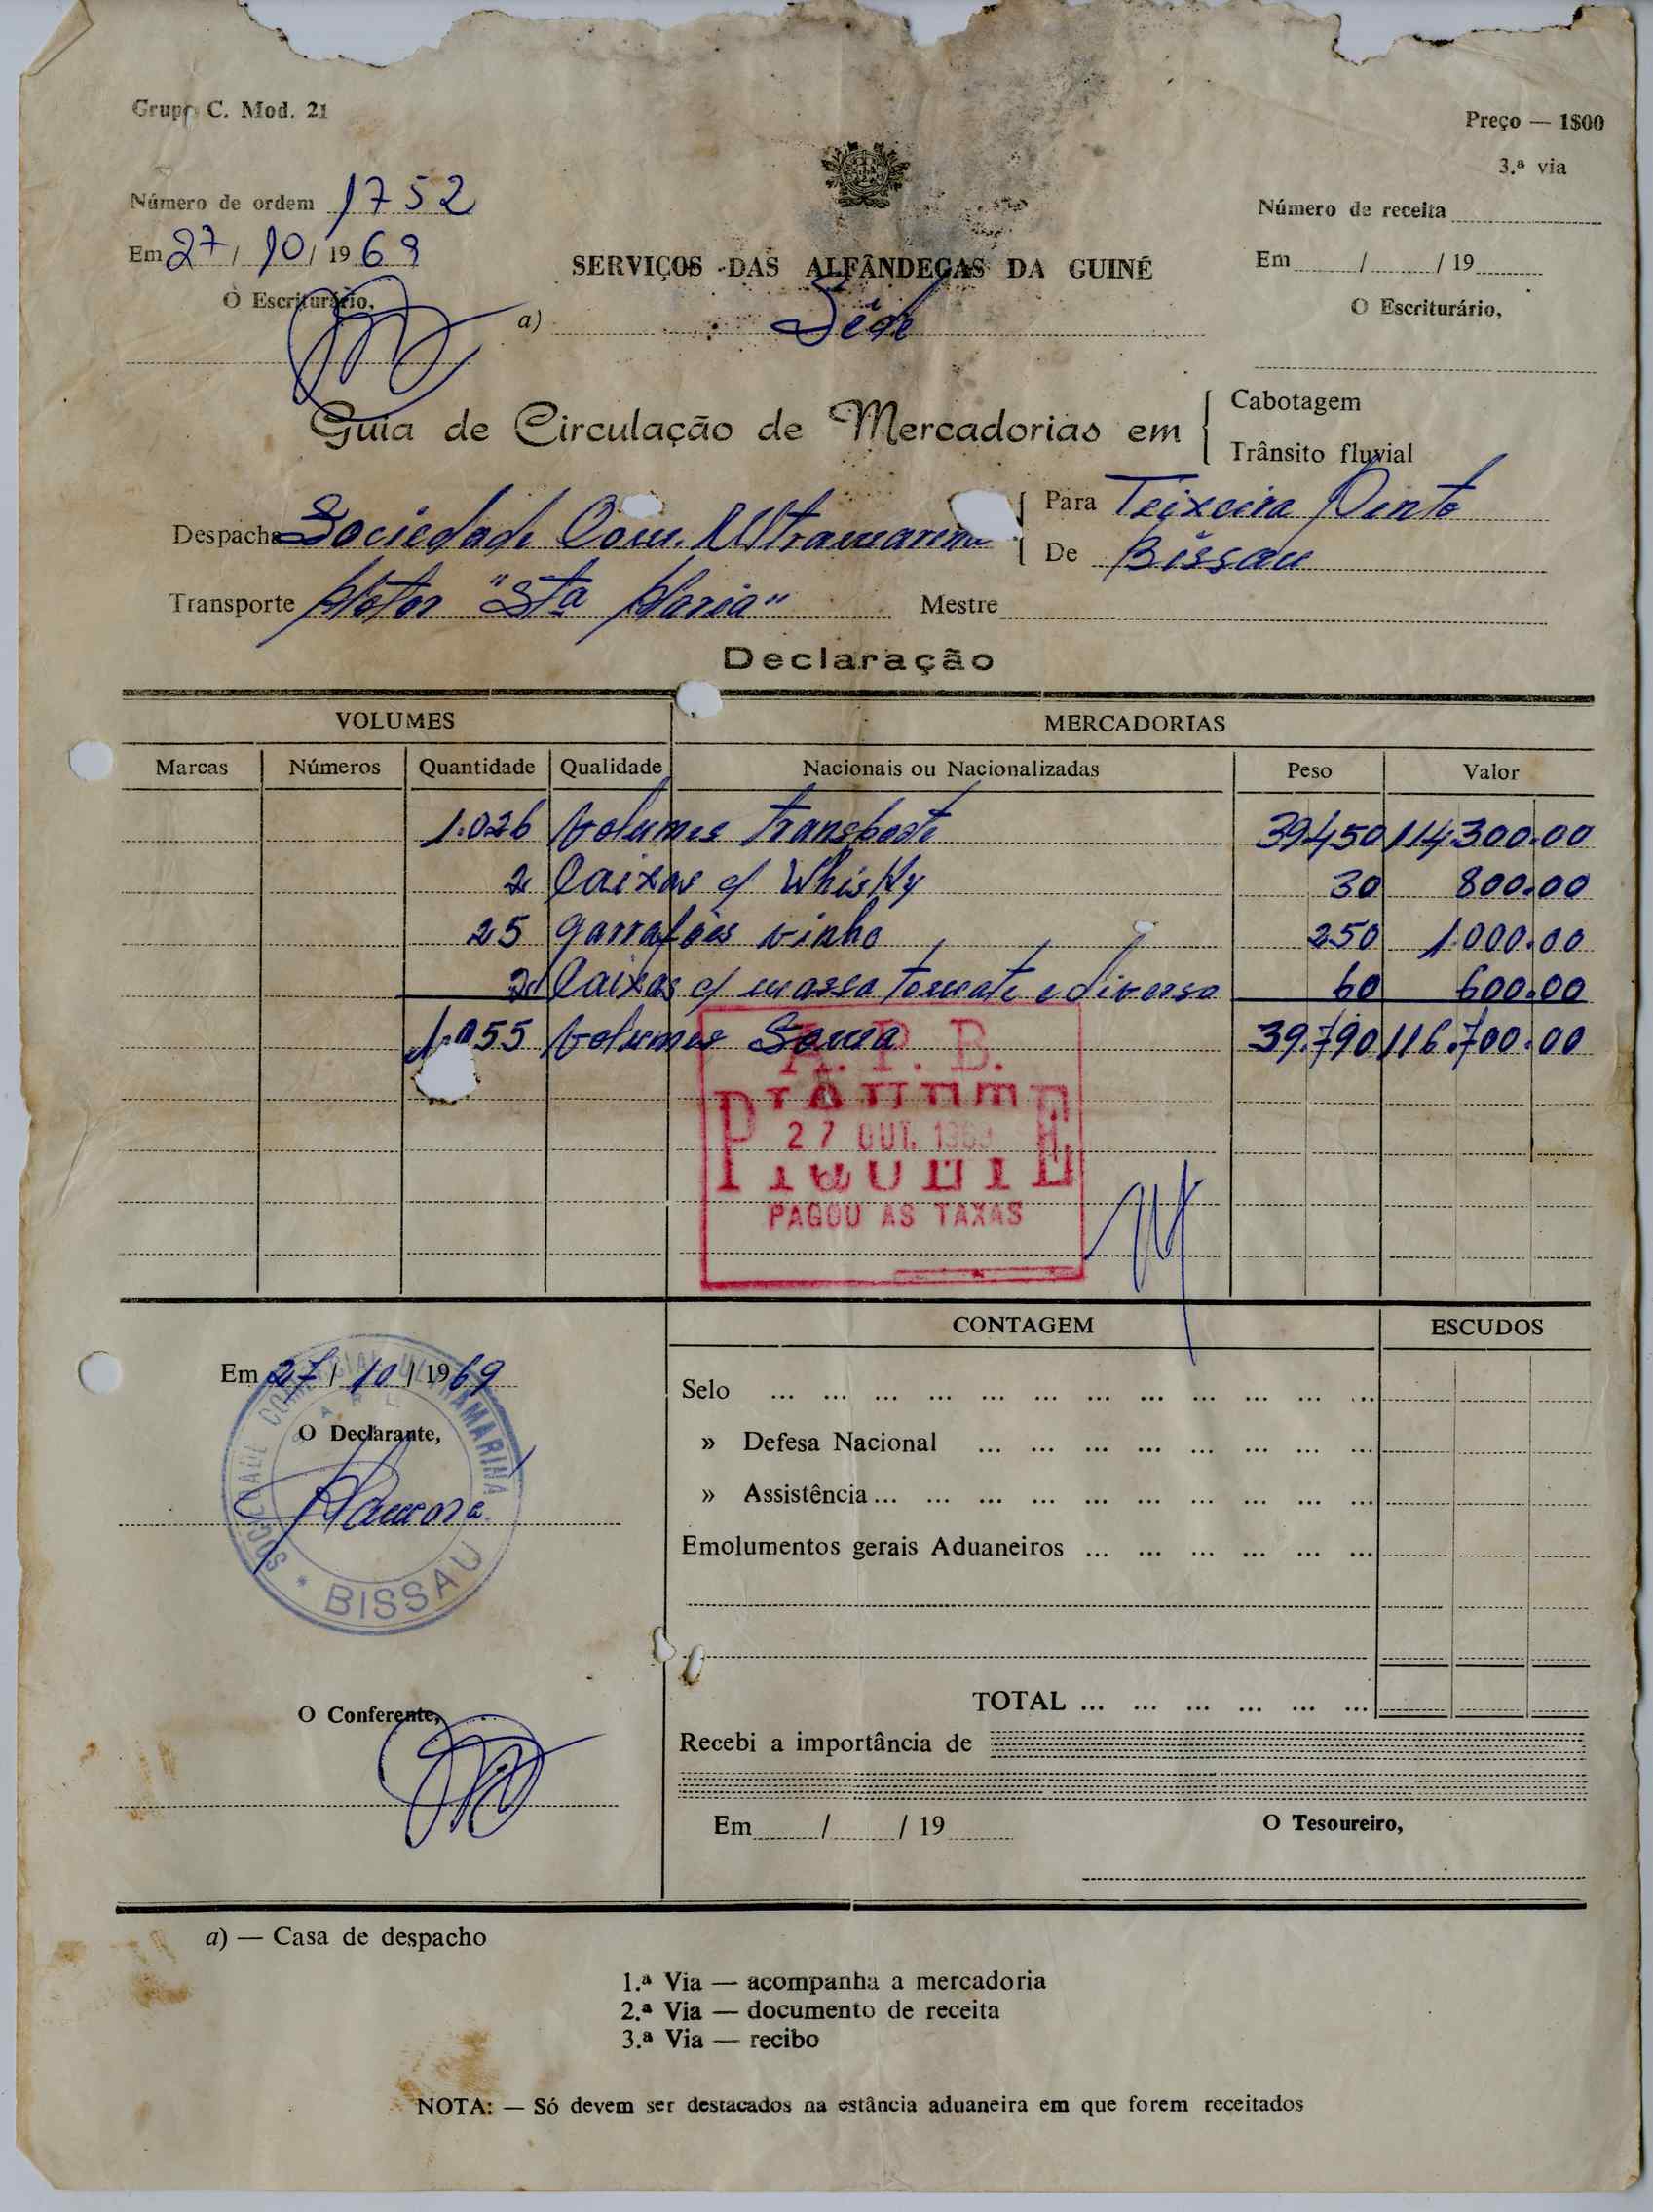 Grupo C. Mod. 21
Preço — 1$00
3.ª via
Número de ordem 1752
Número de receita
Em 27 / 10 / 19 69
SERVIÇOS DAS ALFÂNDEGAS DA GUINÉ
Em / / 19
O Escriturário,
a) Séde
O Escriturário,
Guia de Circulação de Mercadorias em
Cabotagem
Trânsito fluvial
Despacha Sociedade Com. Ultramarina
Para Teixeira Pinto
De Bissau
Transporte Motor "Sta Maria"
Mestre
Declaração
VOLUMES MERCADORIAS
Marcas Números Quantidade Qualidade Nacionais ou Nacionalizadas Peso Valor
1.026 Volumes Transporte 39450 114300.00
2 Caixas c/ Whisky 30 800.00
25 garrafões vinho 250 1000.00
2 Caixas c/ massa tomate e diverso 60 600.00
1.055 Volumes Soma 39.790 116.700.00
A. P. B.
27 OUT. 1969
PAGOU AS TAXAS
CONTAGEM ESCUDOS
Em 27 / 10 / 19 69
Selo ... ... ... ... ... ... ... ... ... ... ... ...
O Declarante,
» Defesa Nacional ... ... ... ... ... ... ... ...
» Assistência ... ... ... ... ... ... ... ... ... ...
Emolumentos gerais Aduaneiros ... ... ... ... ... ...
SOCIEDADE COMERCIAL ULTRAMARINA
S A R L
* BISSAU
TOTAL ... ... ... ... ... ...
O Conferente,
Recebi a importância de
Em / / 19
O Tesoureiro,
a) — Casa de despacho
1.ª Via — acompanha a mercadoria
2.ª Via — documento de receita
3.ª Via — recibo
NOTA: — Só devem ser destacados na estância aduaneira em que forem receitados